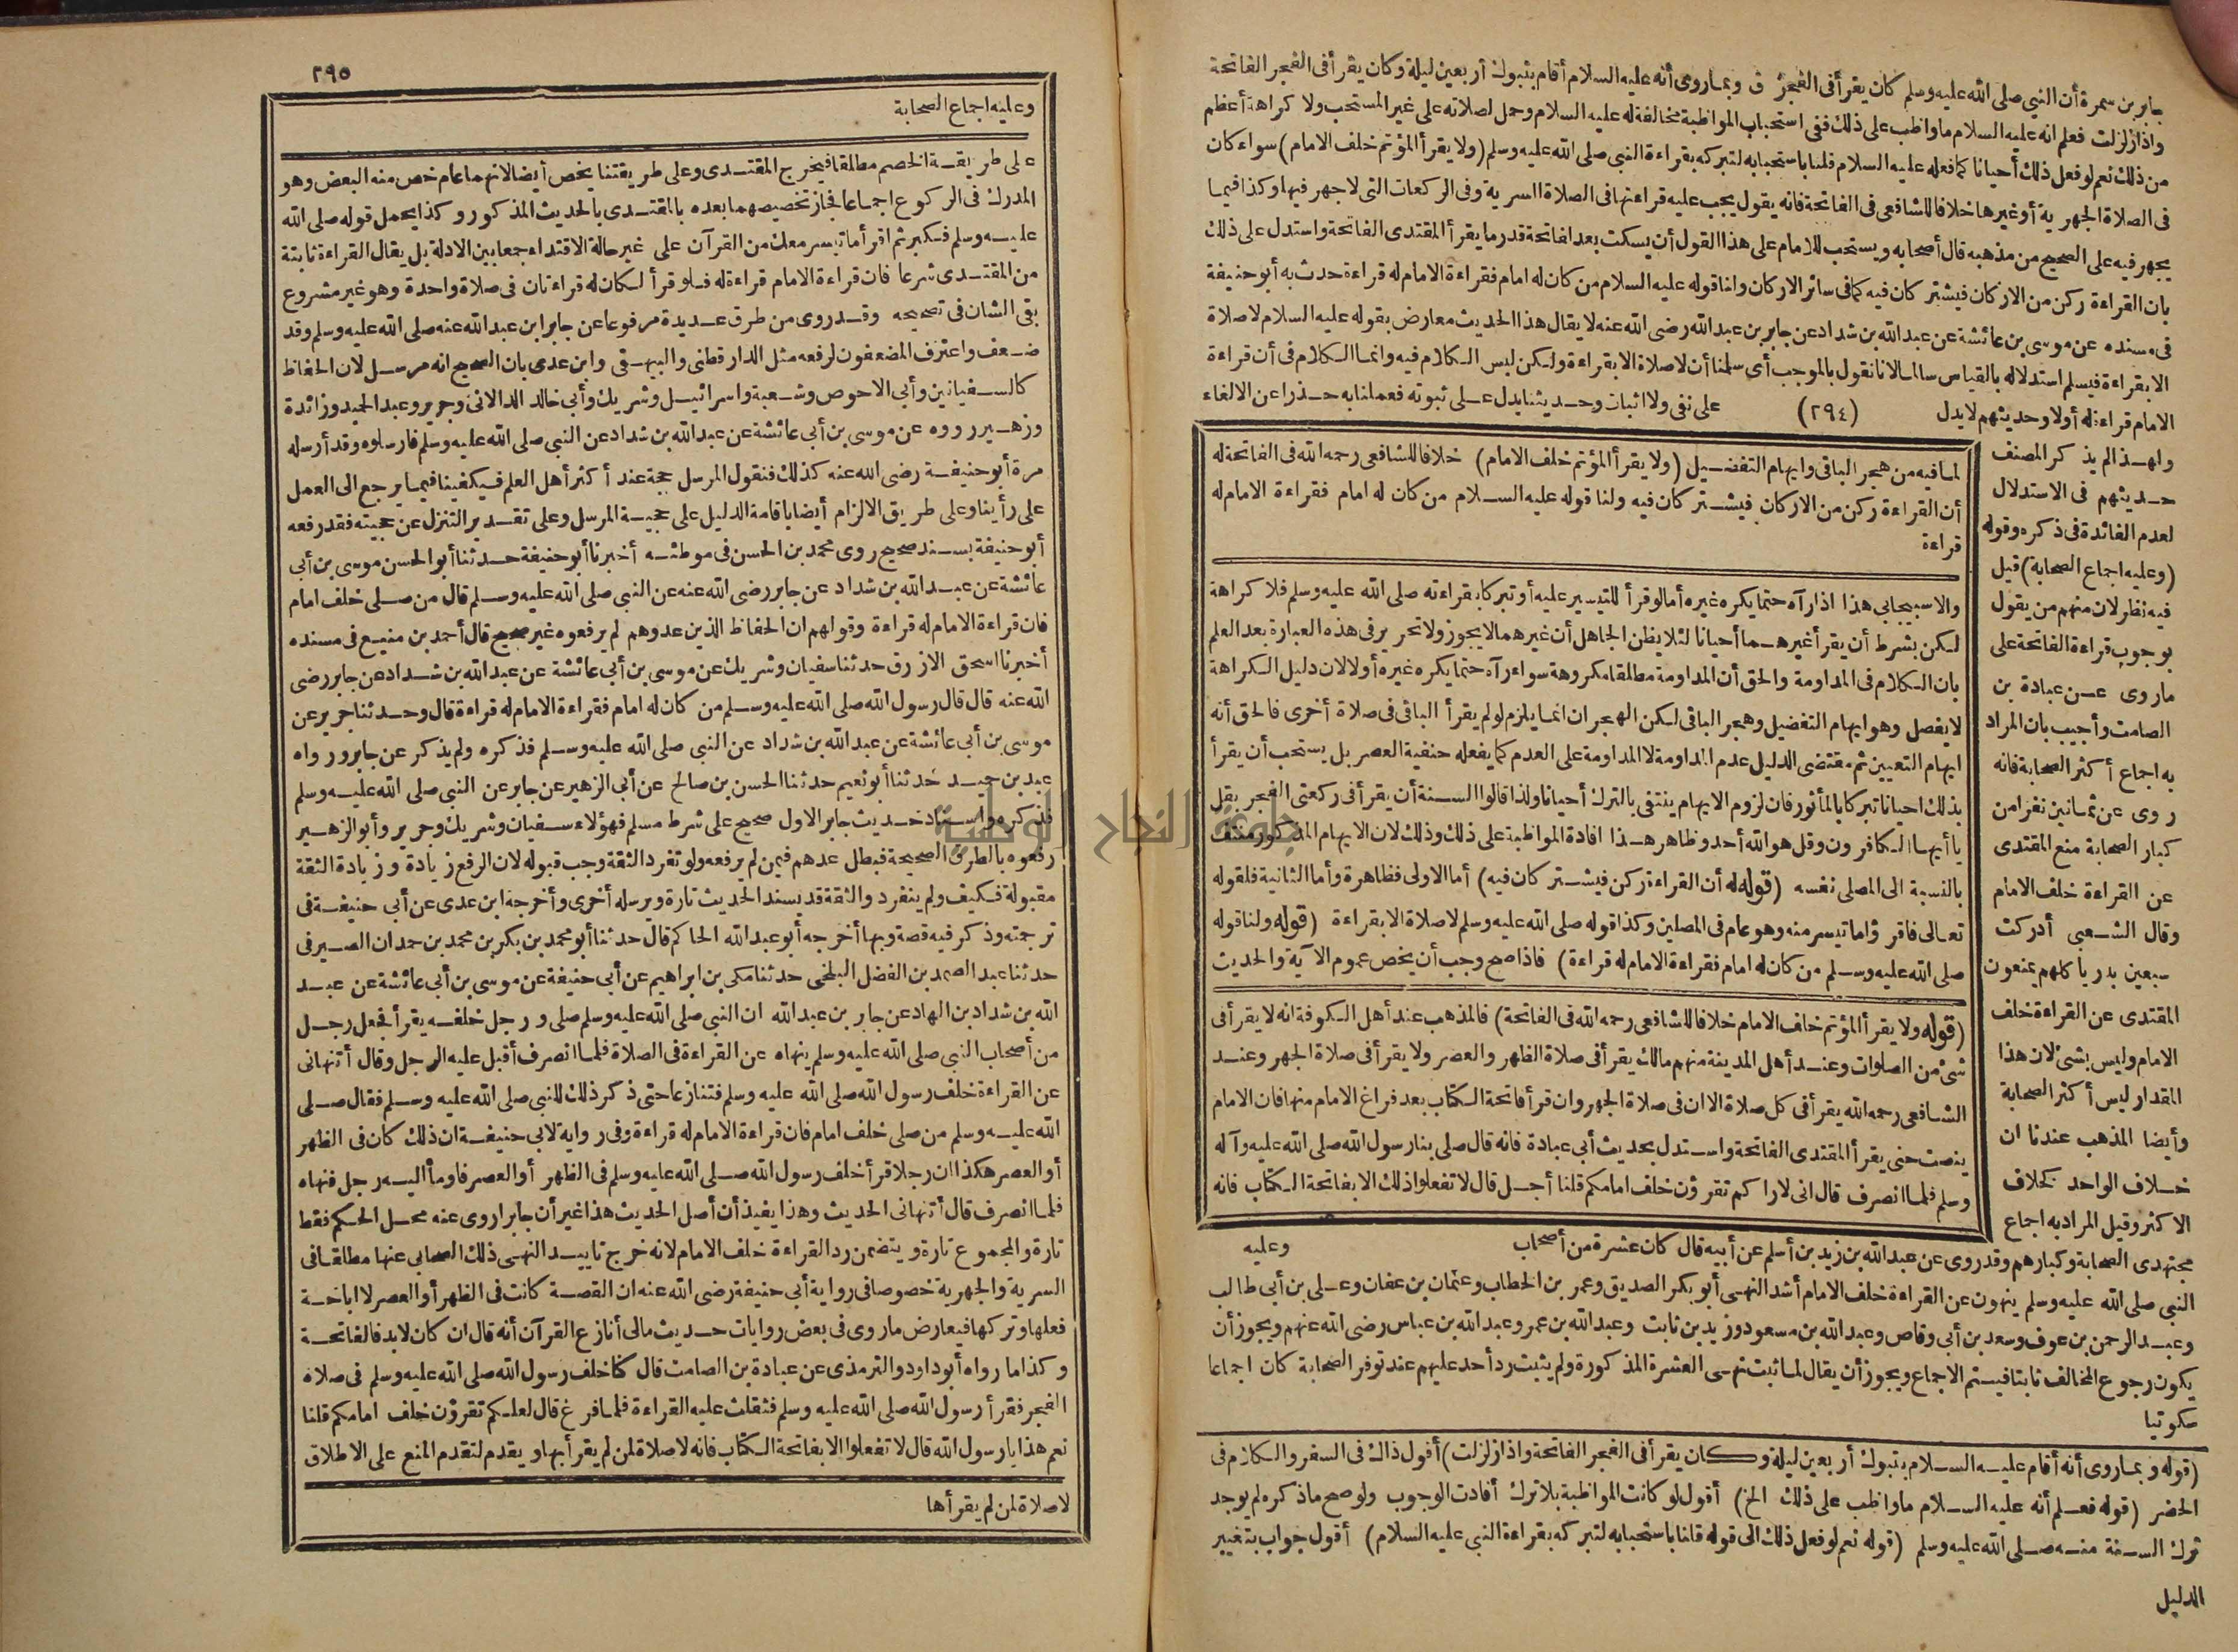 جابر بن سمرة أن النبي صلى الله عليه وسلم كان يقرأ في الفجر ق وبما روى أنه عليه السلام أقام بتبوك أربعين ليلة وكان يقرأ في الفجر الفاتحة
واذا زلزلت فعلم انه عليه السلام ما واظب على ذلك ففي استحباب المواظبة مخالفة له عليه السلام وحمل لصلاته على غير المستحب ولا كراهة أعظم
من ذلك نعم لو فعل ذلك أحيانا كما فعله عليه السلام قلنا باستحبابه لتبركه بقراءة النبي صلى الله عليه وسلم (ولا يقرأ المؤتم خلف الامام) سواء كان
في الصلاة الجهرية أو غيرها خلافا للشافعي في الفاتحة فانه يقول يجب عليه قراءتها في الصلاة السرية وفي الركعات التي لا جهر فيها وكذا فيما
يجهر فيه على الصحيح من مذهبه قال أصحابه ويستحب للامام على هذا القول أن يسكت بعد الفاتحة قدر ما يقرأ المقتدى الفاتحة واستدل على ذلك
بان القراءة ركن من الاركان فيشتركان فيه كما في سائر الاركان ولنا قوله عليه السلام من كان له امام فقراءة الامام له قراءة حدث به أبو حنيفة
في مسنده عن موسى بن عائشة عن عبد الله بن شداد عن جابر بن عبد الله رضى الله عنه لا يقال هذا الحديث معارض بقوله عليه السلام لا صلاة
الا بقراءة فيسلم استدلاله بالقياس سالما لانا نقول بالموجب أى سلمنا أن لا صلاة الا بقراءة ولكن ليس الكلام فيه وانما الكلام في أن قراءة
الامام قراءة له أولا وحديثهم لا يدل (٢٩٤) على نفى ولا اثبات وحديثنا يدل على ثبوته فعملنا به حذرا عن الالغاء
ولهذا لم يذكر المصنف
حديثهم في الاستدلال
لعدم الفائدة في ذكره وقوله
(وعليه اجماع الصحابة) قيل
فيه نظر لان منهم من يقول
بوجوب قراءة الفاتحة على
ما روى عن عبادة بن
الصامت وأجيب بان المراد
به اجماع أكثر الصحابة فانه
روى عن ثمانين نفرا من
كبار الصحابة منع المقتدى
عن القراءة خلف الامام
وقال الشعبي أدركت
سبعين بدريا كلهم يمنعون
المقتدى عن القراءة خلف
الامام وليس بشئ لان هذا
المقدار ليس أكثر الصحابة
وأيضا المذهب عندنا ان
خلاف الواحد كخلاف
الاكثر وقيل المراد به اجماع
لما فيه من هجر الباقي وايهام التفضيل (ولا يقرأ المؤتم خلف الامام) خلافا للشافعي رحمه الله في الفاتحة له
أن القراءة ركن من الاركان فيشتركان فيه ولنا قوله عليه السلام من كان له امام فقراءة الامام له
قراءة
والاسبيجابي هذا اذا رآه حتما يكره غيره أما لو قرأ للتيسير عليه أو تبركا بقراءته صلى الله عليه وسلم فلا كراهة
لكن بشرط أن يقرأ غيرهما أحيانا لئلا يظن الجاهل أن غيرهما لا يجوز ولا تحرير في هذه العبارة بعد العلم
بان الكلام في المداومة والحق أن المداومة مطلقا مكروهة سواء رآه حتما يكره غيره أولا لان دليل الكراهة
لا يفصل وهو ايهام التفضيل وهجر الباقي لكن الهجر ان انما يلزم لو لم يقرأ الباقي في صلاة أخرى فالحق أنه
ايهام التعيين ثم مقتضى الدليل عدم المداومة لا المداومة على العدم كما يفعله حنفية العصر بل يستحب أن يقرأ
بذلك احيانا تبركا بالمأثور فان لزوم الايهام ينتفى بالترك أحيانا ولذا قالوا السنة أن يقرأ في ركعتى الفجر بقل
يا أيها الكافرون وقل هو الله أحد وظاهر هذا افادة المواظبة على ذلك وذلك لان الايهام المذكور منتف
بالنسبة الى المصلى نفسه (قوله له أن القراءة ركن فيشتركان فيه) أما الاولى فظاهرة وأما الثانية فلقوله
تعالى فاقرؤا ما تيسر منه وهو عام في المصلين وكذا قوله صلى الله عليه وسلم لا صلاة الا بقراءة (قوله ولنا قوله
صلى الله عليه وسلم من كان له امام فقراءة الامام له قراءة) فاذا صح وجب أن يخص عموم الآية والحديث
(قوله ولا يقرأ المؤتم خلف الامام خلافا للشافعي رحمه الله في الفاتحة) فالمذهب عند أهل الكوفة انه لا يقرأ في
شئ من الصلوات وعند أهل المدينة منهم مالك يقرأ في صلاة الظهر والعصر ولا يقرأ في صلاة الجهر وعند
الشافعي رحمه الله يقرأ في كل صلاة الا ان في صلاة الجهر وان قرأ فاتحة الكتاب بعد فراغ الامام منها فان الامام
ينصت حتى يقرأ المقتدى الفاتحة واستدل بحديث أبي عبادة فانه قال صلى بنا رسول الله صلى الله عليه وآله
وسلم فلما انصرف قال اني لاراكم تقرؤن خلف امامكم قلنا أجل قال لا تفعلوا ذلك الا بفاتحة الكتاب فانه
مجتهدى الصحابة وكبارهم وقد روى عن عبد الله بن زيد بن أسلم عن أبيه قال كان عشرة من أصحاب
وعليه
النبي صلى الله عليه وسلم ينهون عن القراءة خلف الامام أشد النهى أبو بكر الصديق وعمر بن الخطاب وعثمان بن عفان وعلى بن أبي طالب
وعبد الرحمن بن عوف وسعد بن أبي وقاص وعبد الله بن مسعود وزيد بن ثابت وعبد الله بن عمر وعبد الله بن عباس رضى الله عنهم ويجوز أن
يكون رجوع المخالف ثابتا فيتم الاجماع ويجوز أن يقال لما ثبت نهى العشرة المذكورة ولم يثبت رد أحد عليهم عند توفر الصحابة كان اجماعا
سكوتيا
(قوله وبما روى أنه أقام عليه السلام بتبوك أربعين ليلة وكان يقرأ في الفجر الفاتحة واذا زلزلت) أقول ذاك في السفر والكلام في
الحضر (قوله فعلم أنه عليه السلام ما واظب على ذلك الخ) أقول لو كانت المواظبة بلا ترك أفادت الوجوب ولو صح ما ذكره لم يوجد
ترك السنة منه صلى الله عليه وسلم (قوله نعم لو فعل ذلك الى قوله قلنا باستحبابه لتبركه بقراءة النبي عليه السلام) أقول جواب بتغيير
الدليل
٢٩٥
وعليه اجماع الصحابة
على طريقة الخصم مطلقا فيخرج المقتدى وعلى طريقتنا يخص أيضا لانهما عام خص منه البعض وهو
المدرك في الركوع اجماعا فجاز تخصيصهما بعده بالمقتدى بالحديث المذكور وكذا يحمل قوله صلى الله
عليه وسلم فكبر ثم اقرأ ما تيسر معك من القرآن على غير حالة الاقتداء جمعا بين الادلة بل يقال القراءة ثابتة
من المقتدى شرعا فان قراءة الامام قراءة له فلو قرأ لكان له قراءتان في صلاة واحدة وهو غير مشروع
بقى الشان في تصحيحه وقد روى من طرق عديدة مرفوعا عن جابر ابن عبد الله عنه صلى الله عليه وسلم وقد
ضعف واعترف المضعفون لرفعه مثل الدارقطنى والبيهقى وابن عدى بان الصحيح انه مرسل لان الحفاظ
كالسفيانين وأبي الاحوص وشعبة واسرائيل وشريك وأبي خالد الدالاني وجرير وعبد الحميد وزائدة
وزهير رووه عن موسى بن أبي عائشة عن عبد الله بن شداد عن النبي صلى الله عليه وسلم فارسلوه وقد أرسله
مرة أبو حنيفة رضى الله عنه كذلك فنقول المرسل حجة عند أكثر أهل العلم فيكفينا فيما يرجع الى العمل
على رأينا وعلى طريق الالزام أيضا باقامة الدليل على حجية المرسل وعلى تقدير التنزل عن حجيته فقد رفعه
أبو حنيفة بسند صحيح روى محمد بن الحسن في موطئه أخبرنا أبو حنيفة حدثنا أبو الحسن موسى بن أبي
عائشة عن عبد الله بن شداد عن جابر رضى الله عنه عن النبي صلى الله عليه وسلم قال من صلى خلف امام
فان قراءة الامام له قراءة وقولهم ان الحفاظ الذين عدوهم لم يرفعوه غير صحيح قال أحمد بن منيع في مسنده
أخبرنا اسحق الازرق حدثنا سفيان وشريك عن موسى بن أبي عائشة عن عبد الله بن شداد عن جابر رضى
الله عنه قال قال رسول الله صلى الله عليه وسلم من كان له امام فقراءة الامام له قراءة قال وحدثنا جرير عن
موسى بن أبي عائشة عن عبد الله بن شداد عن النبي صلى الله عليه وسلم فذكره ولم يذكر عن جابر ورواه
عبد بن حميد حدثنا أبو نعيم حدثنا الحسن بن صالح عن أبي الزهير عن جابر عن النبي صلى الله عليه وسلم
فذكره واسناد حديث جابر الاول صحيح على شرط مسلم فهؤلاء سفيان وشريك وجرير وأبو الزهير
رفعوه بالطرق الصحيحة فبطل عدهم فيمن لم يرفعه ولو تفرد الثقة وجب قبوله لان الرفع زيادة وزيادة الثقة
مقبولة فكيف ولم ينفرد والثقة قد يسند الحديث تارة ويرسله أخرى وأخرجه ابن عدى عن أبي حنيفة في
ترجمته وذكر فيه قصة وبها أخرجه أبو عبد الله الحاكم قال حدثنا أبو محمد بن بكر بن محمد بن حمدان الصيرفي
حدثنا عبد الصمد بن الفضل البلخي حدثنا مكي بن ابراهيم عن أبي حنيفة عن موسى بن أبي عائشة عن عبد
الله بن شداد بن الهاد عن جابر بن عبد الله ان النبي صلى الله عليه وسلم صلى ورجل خلفه يقرأ فجعل رجل
من أصحاب النبي صلى الله عليه وسلم ينهاه عن القراءة في الصلاة فلما انصرف أقبل عليه الرجل وقال أتنهاني
عن القراءة خلف رسول الله صلى الله عليه وسلم فتنازعا حتى ذكر ذلك للنبي صلى الله عليه وسلم فقال صلى
الله عليه وسلم من صلى خلف امام فان قراءة الامام له قراءة وفي رواية لابي حنيفة ان ذلك كان في الظهر
أو العصر هكذا ان رجلا قرأ خلف رسول الله صلى الله عليه وسلم في الظهر أو العصر فاومأ اليه رجل فنهاه
فلما انصرف قال أتنهاني الحديث وهذا يفيد أن أصل الحديث هذا غير أن جابرا روى عنه محل الحكم فقط
تارة والمجموع تارة ويتضمن رد القراءة خلف الامام لانه خرج تاييد النهى ذلك الصحابي عنها مطلقا في
السرية والجهرية خصوصا في رواية أبي حنيفة رضى الله عنه ان القصة كانت في الظهر أو العصر لا اباحة
فعلها وتركها فيعارض ما روى في بعض روايات حديث مالى أنازع القرآن أنه قال ان كان لابد فالفاتحة
وكذا ما رواه أبو داود والترمذى عن عبادة بن الصامت قال كنا خلف رسول الله صلى الله عليه وسلم في صلاة
الفجر فقرأ رسول الله صلى الله عليه وسلم فثقلت عليه القراءة فلما فرغ قال لعلكم تقرؤن خلف امامكم قلنا
نعم هذا يا رسول الله قال لا تفعلوا الا بفاتحة الكتاب فانه لا صلاة لمن لم يقرأ بها ويقدم لتقدم المنع على الاطلاق
لا صلاة لمن لم يقرأها
جامعة النجاح الوطنية